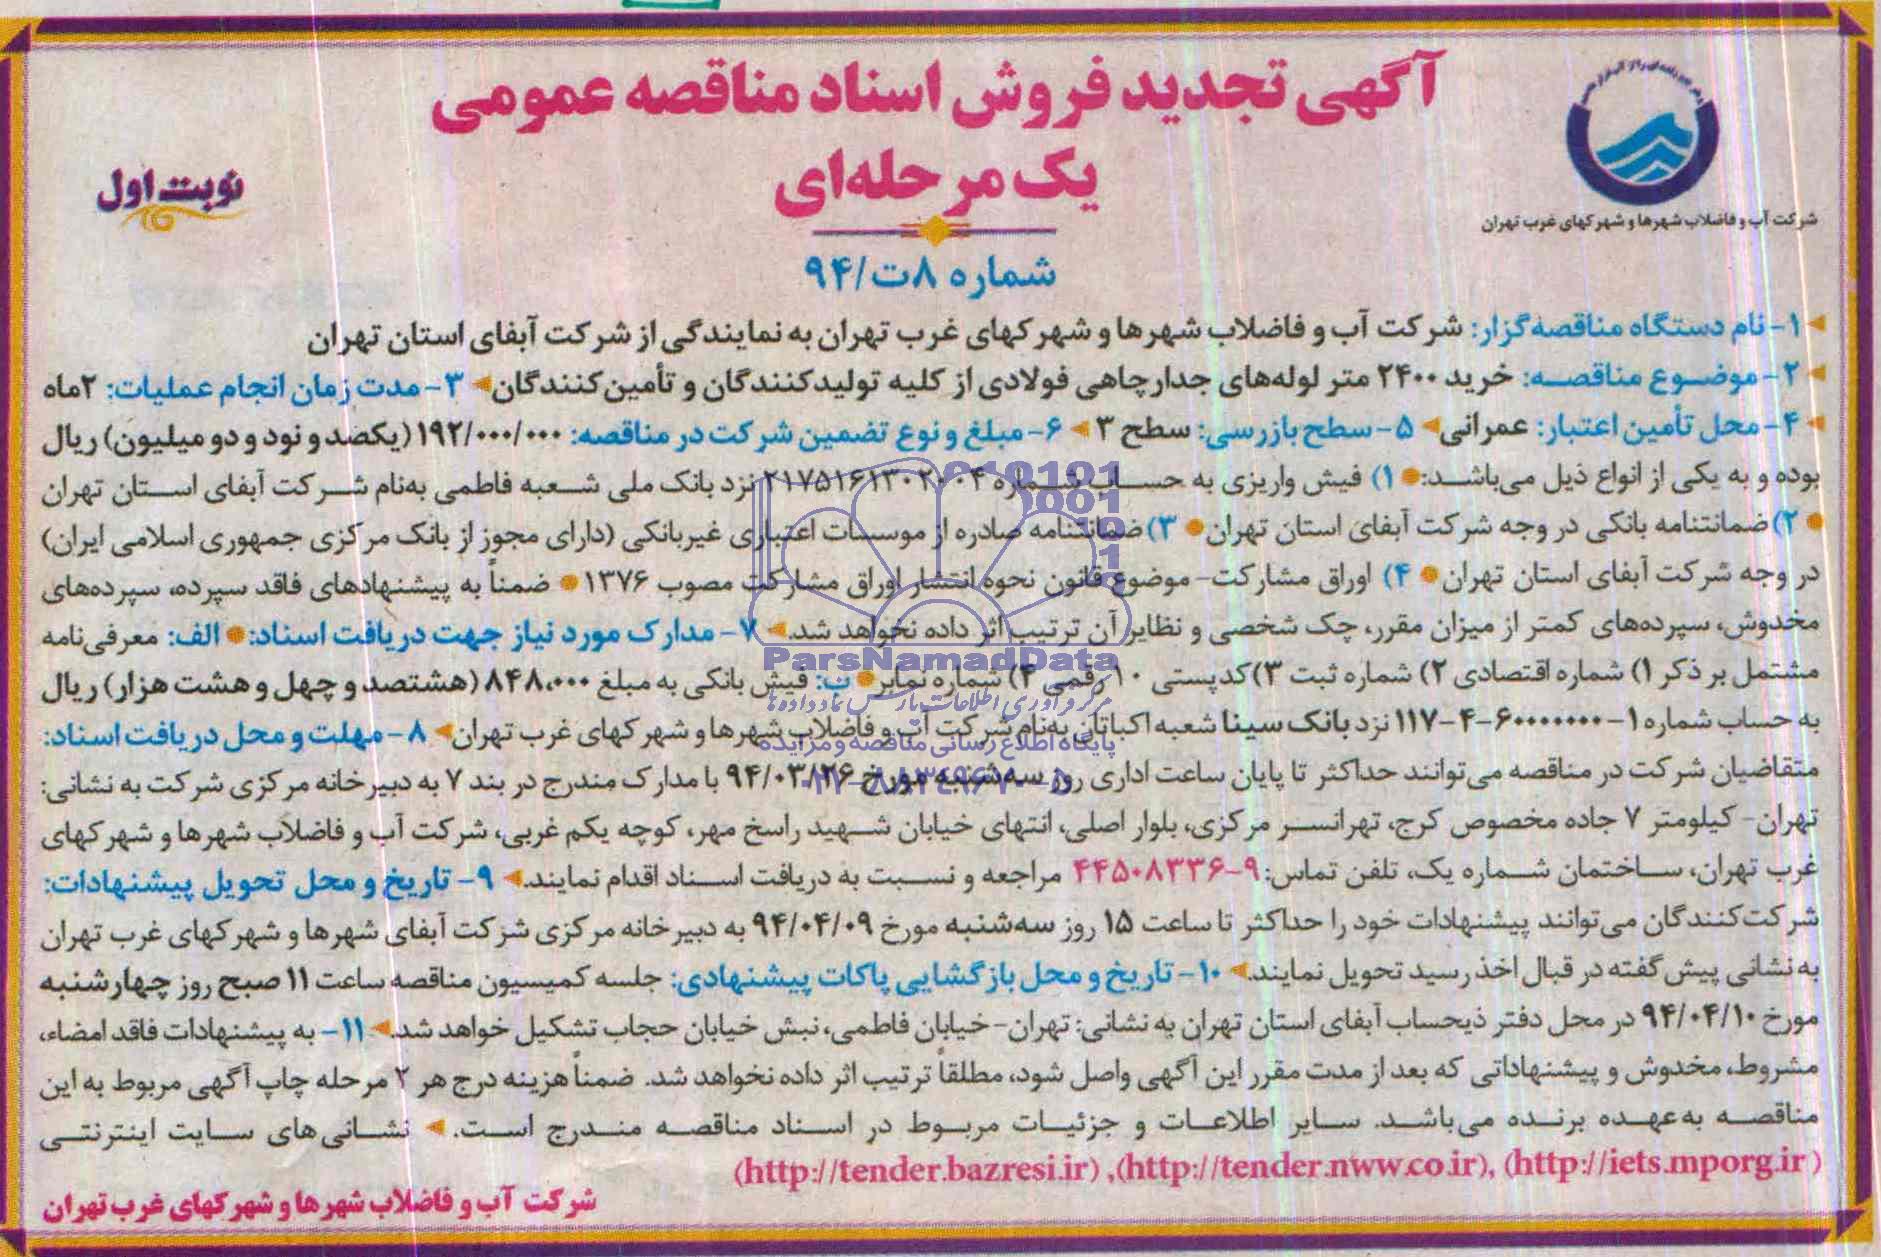 آگهی تجدید فروش اسناد مناقصه عمومی
یک مرحله‌ای
نوبت اول
شرکت آب و فاضلاب شهرها و شهرکهای غرب تهران
شماره ۸ت/۹۴
۱- نام دستگاه مناقصه‌گزار: شرکت آب و فاضلاب شهرها و شهرکهای غرب تهران به نمایندگی از شرکت آبفای استان تهران
۲- موضوع مناقصه: خرید ۲۴۰۰ متر لوله‌های جدارچاهی فولادی از کلیه تولیدکنندگان و تأمین‌کنندگان ۳- مدت زمان انجام عملیات: ۲ماه
۴- محل تأمین اعتبار: عمرانی ۵- سطح بازرسی: سطح ۳ ۶- مبلغ و نوع تضمین شرکت در مناقصه: ۱۹۲/۰۰۰/۰۰۰ (یکصد و نود و دو میلیون) ریال
بوده و به یکی از انواع ذیل می‌باشد: ۱) فیش واریزی به حساب شماره ۲۱۷۵۱۶۱۳۰۲۰۰۴ نزد بانک ملی شعبه فاطمی به‌نام شرکت آبفای استان تهران
۲) ضمانتنامه بانکی در وجه شرکت آبفای استان تهران ۳) ضمانتنامه صادره از موسسات اعتباری غیربانکی (دارای مجوز از بانک مرکزی جمهوری اسلامی ایران)
در وجه شرکت آبفای استان تهران ۴) اوراق مشارکت- موضوع قانون نحوه انتشار اوراق مشارکت مصوب ۱۳۷۶ ضمناً به پیشنهادهای فاقد سپرده، سپرده‌های
مخدوش، سپرده‌های کمتر از میزان مقرر، چک شخصی و نظایر آن ترتیب اثر داده نخواهد شد. ۷- مدارک مورد نیاز جهت دریافت اسناد: الف: معرفی‌نامه
مشتمل بر ذکر ۱) شماره اقتصادی ۲) شماره ثبت ۳) کدپستی ۱۰ رقمی ۴) شماره نمابر ب: فیش بانکی به مبلغ ۸۴۸،۰۰۰ (هشتصد و چهل و هشت هزار) ریال
به حساب شماره ۱-۶۰۰۰۰۰۰۰-۴-۱۱۷ نزد بانک سینا شعبه اکباتان به‌نام شرکت آب و فاضلاب شهرها و شهرکهای غرب تهران ۸- مهلت و محل دریافت اسناد:
متقاضیان شرکت در مناقصه می‌توانند حداکثر تا پایان ساعت اداری روز سه‌شنبه مورخ ۹۴/۰۳/۲۶ با مدارک مندرج در بند ۷ به دبیرخانه مرکزی شرکت به نشانی:
تهران- کیلومتر ۷ جاده مخصوص کرج، تهرانسر مرکزی، بلوار اصلی، انتهای خیابان شهید راسخ مهر، کوچه یکم غربی، شرکت آب و فاضلاب شهرها و شهرکهای
غرب تهران، ساختمان شماره یک، تلفن تماس: ۹-۴۴۵۰۸۳۳۶ مراجعه و نسبت به دریافت اسناد اقدام نمایند. ۹- تاریخ و محل تحویل پیشنهادات:
شرکت‌کنندگان می‌توانند پیشنهادات خود را حداکثر تا ساعت ۱۵ روز سه‌شنبه مورخ ۹۴/۰۴/۰۹ به دبیرخانه مرکزی شرکت آبفای شهرها و شهرکهای غرب تهران
به نشانی پیش گفته در قبال اخذ رسید تحویل نمایند. ۱۰- تاریخ و محل بازگشایی پاکات پیشنهادی: جلسه کمیسیون مناقصه ساعت ۱۱ صبح روز چهارشنبه
مورخ ۹۴/۰۴/۱۰ در محل دفتر ذیحساب آبفای استان تهران به نشانی: تهران- خیابان فاطمی، نبش خیابان حجاب تشکیل خواهد شد. ۱۱- به پیشنهادات فاقد امضاء،
مشروط، مخدوش و پیشنهاداتی که بعد از مدت مقرر این آگهی واصل شود، مطلقاً ترتیب اثر داده نخواهد شد. ضمناً هزینه درج هر ۲ مرحله چاپ آگهی مربوط به این
مناقصه به‌عهده برنده می‌باشد. سایر اطلاعات و جزئیات مربوط در اسناد مناقصه مندرج است. نشانی‌های سایت اینترنتی
(http://tender.bazresi.ir) ,(http://tender.nww.co.ir), (http://iets.mporg.ir)
شرکت آب و فاضلاب شهرها و شهرکهای غرب تهران
ParsNamadData
مرکز فرآوری اطلاعات پارس نماد داده‌ها
پایگاه اطلاع رسانی مناقصه و مزایده
۰۲۱-۸۸۳۴۹۶۷۰-۵